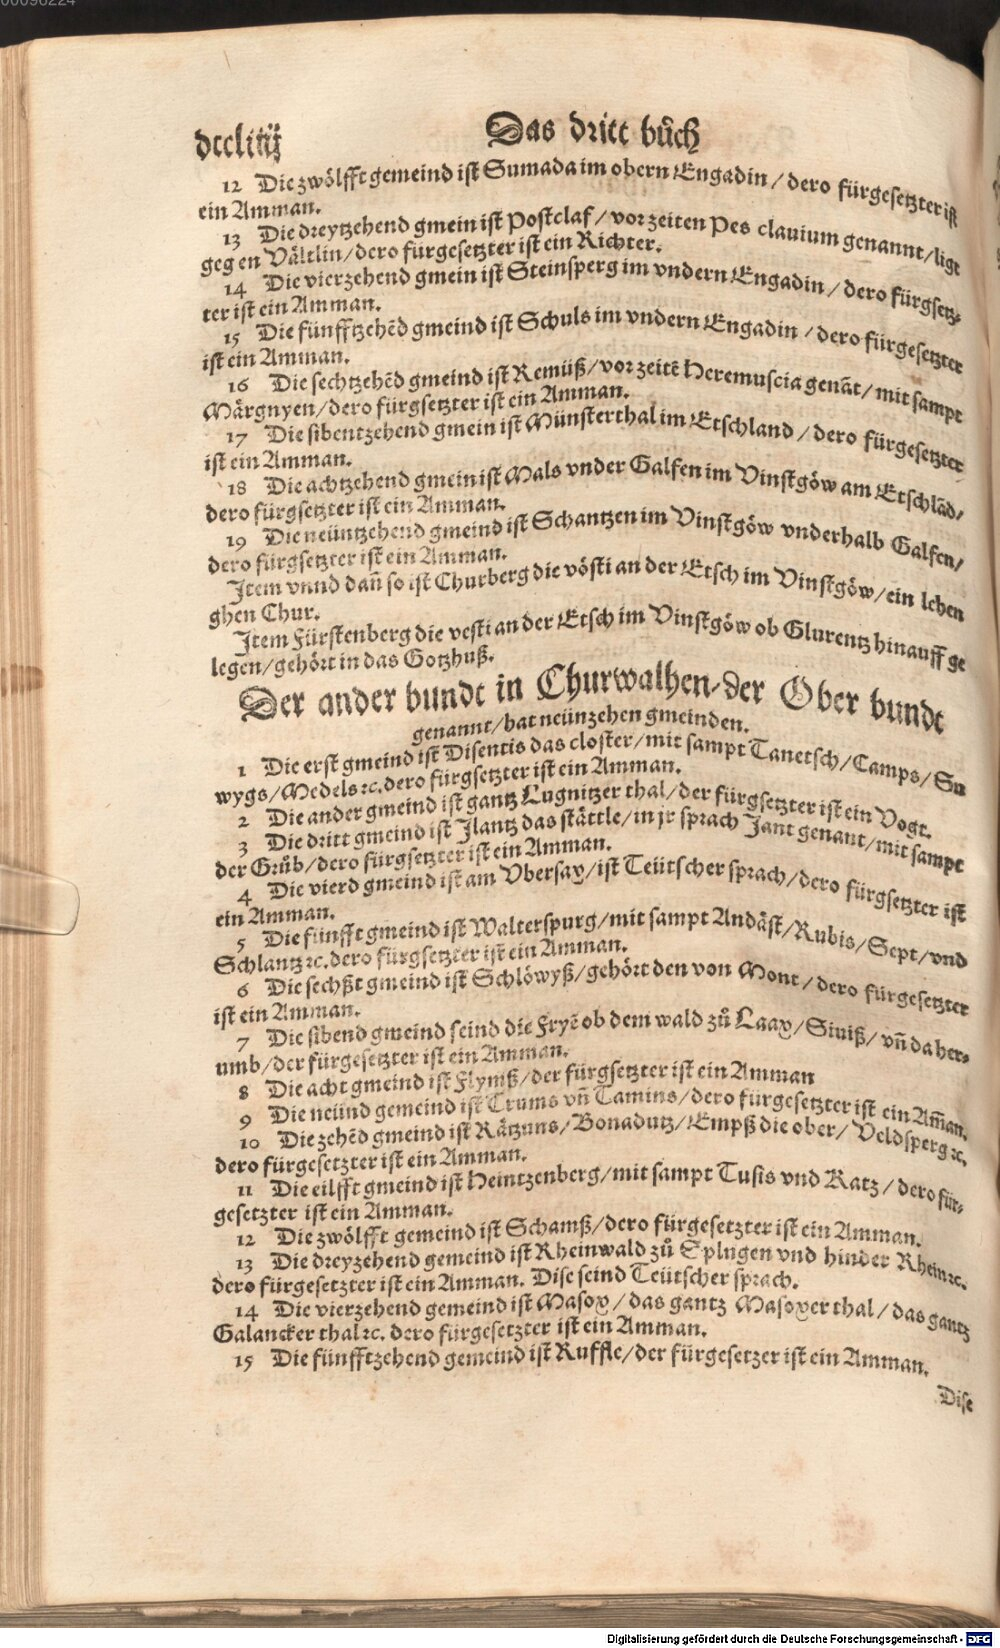 00096224
dccliiij
Das dritt bůch
12 Die zwölfft gemeind ist Sumada im obern Engadin / dero fürgesetzter ist
ein Amman.
13 Die dreytzehend gmein ist Postclaf / vor zeiten Pes clauium genannt / ligt
gegen Vältlin / dero fürgesetzter ist ein Richter.
14 Die vierzehend gmein ist Steinsperg im vndern Engadin / dero fürgsetz-
ter ist ein Amman.
15 Die fünfftzehẽd gmeind ist Schuls im vndern Engadin / dero fürgesetzter
ist ein Amman.
16 Die sechtzehẽd gmeind ist Remüß / vor zeitẽ Heremuscia genãt / mit sampt
Märgnyen / dero fürgsetzter ist ein Amman.
17 Die sibentzehend gmein ist Münsterthal im Etschland / dero fürgesetzter
ist ein Amman.
18 Die achtzehend gmein ist Mals vnder Galfen im Vinstgöw am Etschlãd /
dero fürgsetzter ist ein Amman.
19 Die neüntzehend gmeind ist Schantzen im Vinstgöw vnderhalb Galfen /
dero fürgsetzter ist ein Amman.
Item vnnd dañ so ist Churberg die vösti an der Etsch im Vinstgöw / ein lehen
ghen Chur.
Item Fürstenberg die vesti an der Etsch im Vinstgöw ob Glurentz hinauff ge
legen / gehört in das Gotzhuß.
Der ander bundt in Churwalhen / der Ober bundt
genannt / hat neünzehen gmeinden.
1 Die erst gmeind ist Disentis das closter / mit sampt Tanetsch / Camps / Su
wygs / Medels ꝛc. dero fürgsetzter ist ein Amman.
2 Die ander gmeind ist gantz Lugnitzer thal / der fürgsetzter ist ein Vogt.
3 Die dritt gmeind ist Jlantz das stättle / in jr sprach Jant genant / mit sampt
der Grůb / dero fürgsetzter ist ein Amman.
4 Die vierd gmeind ist am Vbersax / ist Teütscher sprach / dero fürgsetzter ist
ein Amman.
5 Die fünfft gmeind ist Walterspurg / mit sampt Andäst / Rubis / Sept / vnd
Schlantz ꝛc. dero fürgsetzter ist ein Amman.
6 Die sechßt gmeind ist Schlöwyß / gehört den von Mont / dero fürgesetzter
ist ein Amman.
7 Die sibend gmeind seind die Fryẽ ob dem wald zů Laax / Siuiß / vñ da her-
umb / der fürgesetzter ist ein Amman.
8 Die acht gmeind ist Flymß / der fürgsetzter ist ein Amman
9 Die neünd gemeind ist Trums vñ Tamins / dero fürgesetzter ist ein Am̃an.
10 Die zehẽd gmeind ist Rätzuns / Bonadutz / Empß die ober / Veldsperg ꝛc.
dero fürgesetzter ist ein Amman.
11 Die eilfft gmeind ist Heintzenberg / mit sampt Tusis vnd Katz / dero für-
gesetzter ist ein Amman.
12 Die zwölfft gemeind ist Schamß / dero fürgesetzter ist ein Amman.
13 Die dreyzehend gemeind ist Rheinwald zů Splugen vnd hinder Rhein ꝛc.
dero fürgesetzter ist ein Amman. Dise seind Teütscher sprach.
14 Die vierzehend gemeind ist Masox / das gantz Masoxer thal / das gantz
Galancker thal ꝛc. dero fürgesetzter ist ein Amman.
15 Die fünfftzehend gemeind ist Ruffle / der fürgesetzer ist ein Amman.
Dise
Digitalisierung gefördert durch die Deutsche Forschungsgemeinschaft - DFG